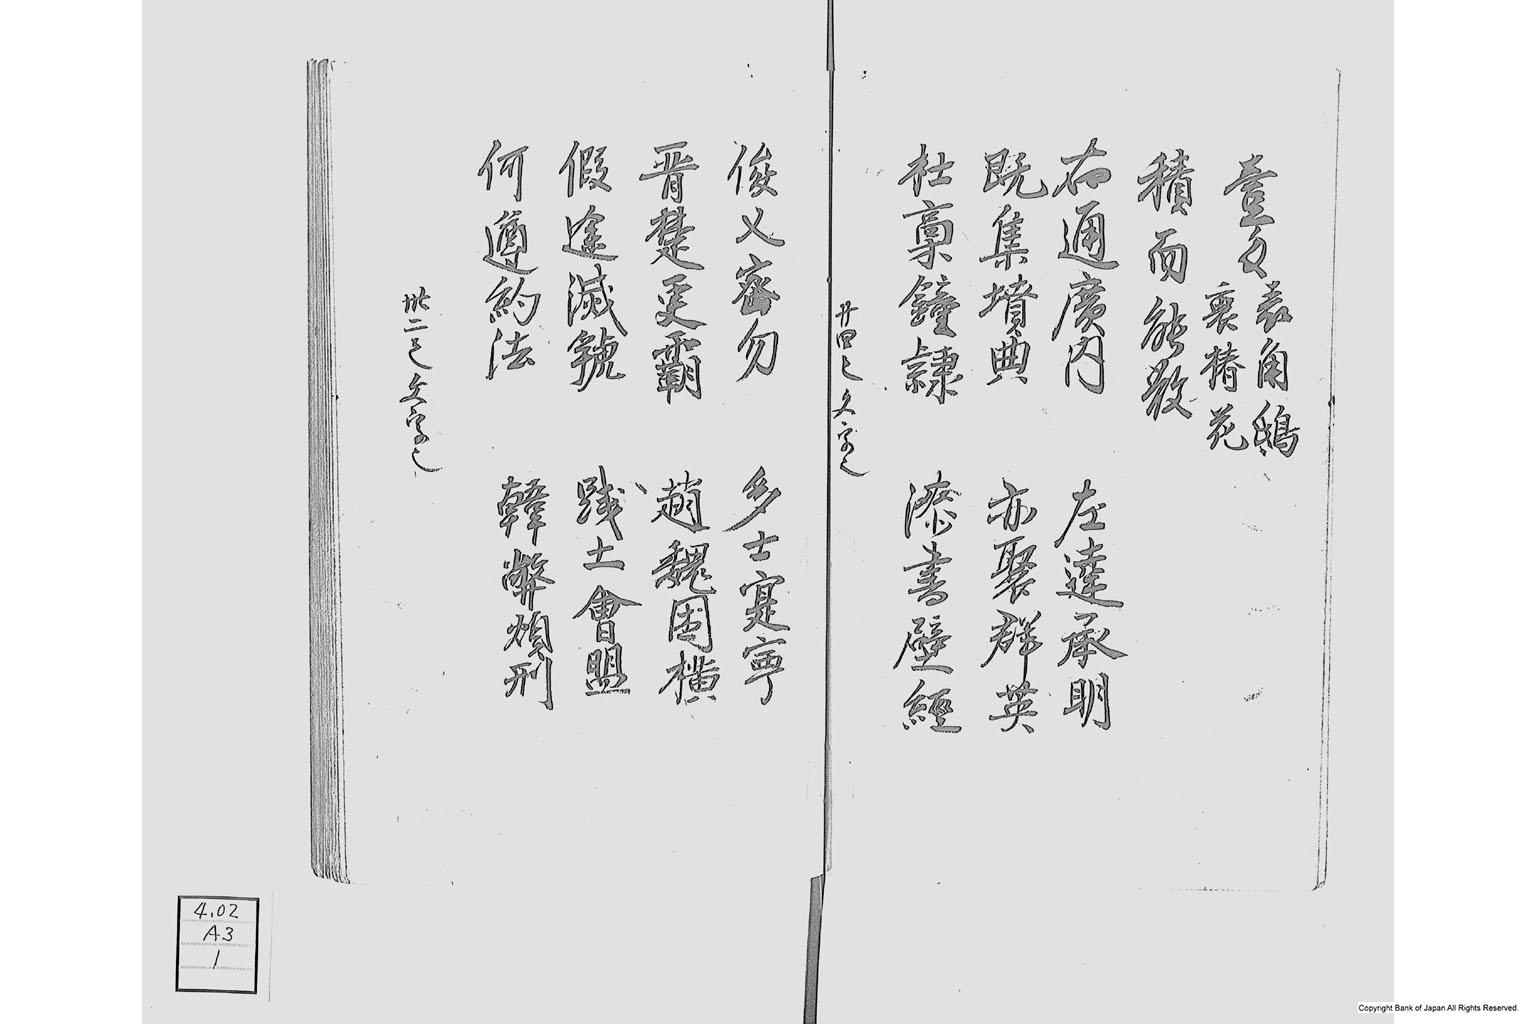 壹
表角鴟
裏椿花
積而能散
右通廣内 左達承明
既集墳典 亦聚群英
杜稾鐘隷 漆書壁經
廿四 文字
俊乂密勿 多士寔寧
晋楚更霸 趙魏困横
假途滅虢 践土會盟
何遵約法 韓弊煩刑
卅二 文字
4.02
A3
1
Copyright Bank of Japan All Rights Reserved.